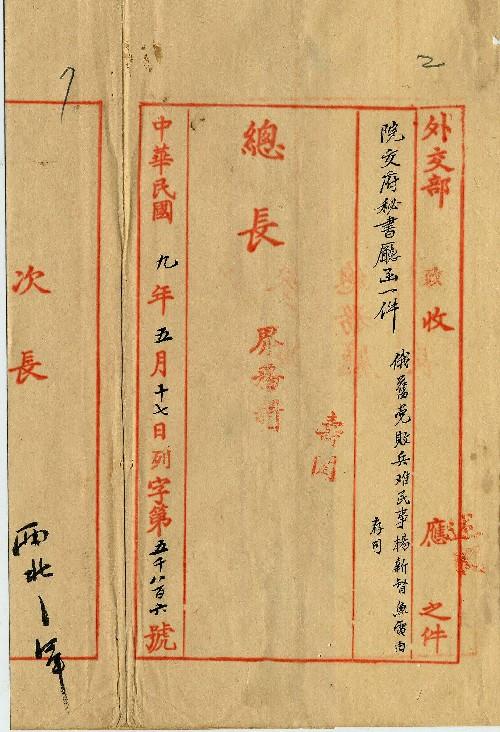 2
外交部 收 應 之件
院交府秘書廳函一件
俄舊党敗兵难民事楊新督魚電由
存司
總長
壽
中華民國九年五月十七日列字第五千八百六號
次長
西北